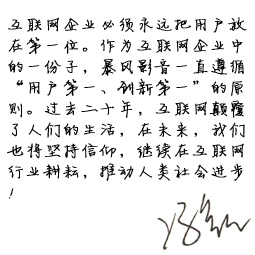 互联网企业必须永远把用户放
在第一位。作为互联网企业中
的一份子，暴风影音一直遵循
“用户第一、创新第一”的原
则。过去二十年，互联网颠覆
了人们的生活，在未来，我们
也将坚持信仰，继续在互联网
行业耕耘，推动人类社会进步
！